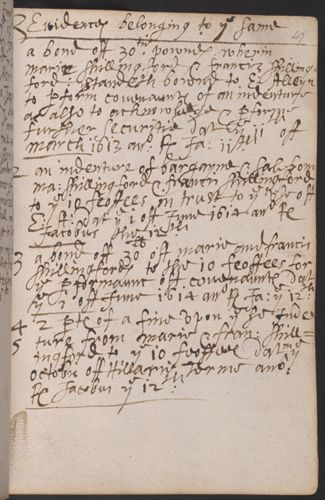 3 Evidences belonging to ye same
49
a bond off 30 li pownds wherin
marie shillingford & francis shilling-
ford standeth bownd to E: Alleyn
to pform covenants of an indenture
as also to acknowledge & pforme
further securitie dat ye 11 off
march 1613 an: R Ja: 11th
2 an indenture of bargaine & sale from
ma: shillingford & francis shillingford
to ye 10 feoffees in trust to ye use off
E: A: dat ye 1 off June 1614 an R
Jacobus the 12th
3 a bond off 30 off marie and francis
shillingford to the 10 feoffees for
ye pformanc off covenants dat
ye 1 off June 1614 an R Ja: ye 12:
4 2 pts of a fine upon ye
5 ture from marie & fran: shill-
ingford to ye 10 feoffees dat
octob: off Hillarii Terme ano
R Jacobui ye 12th